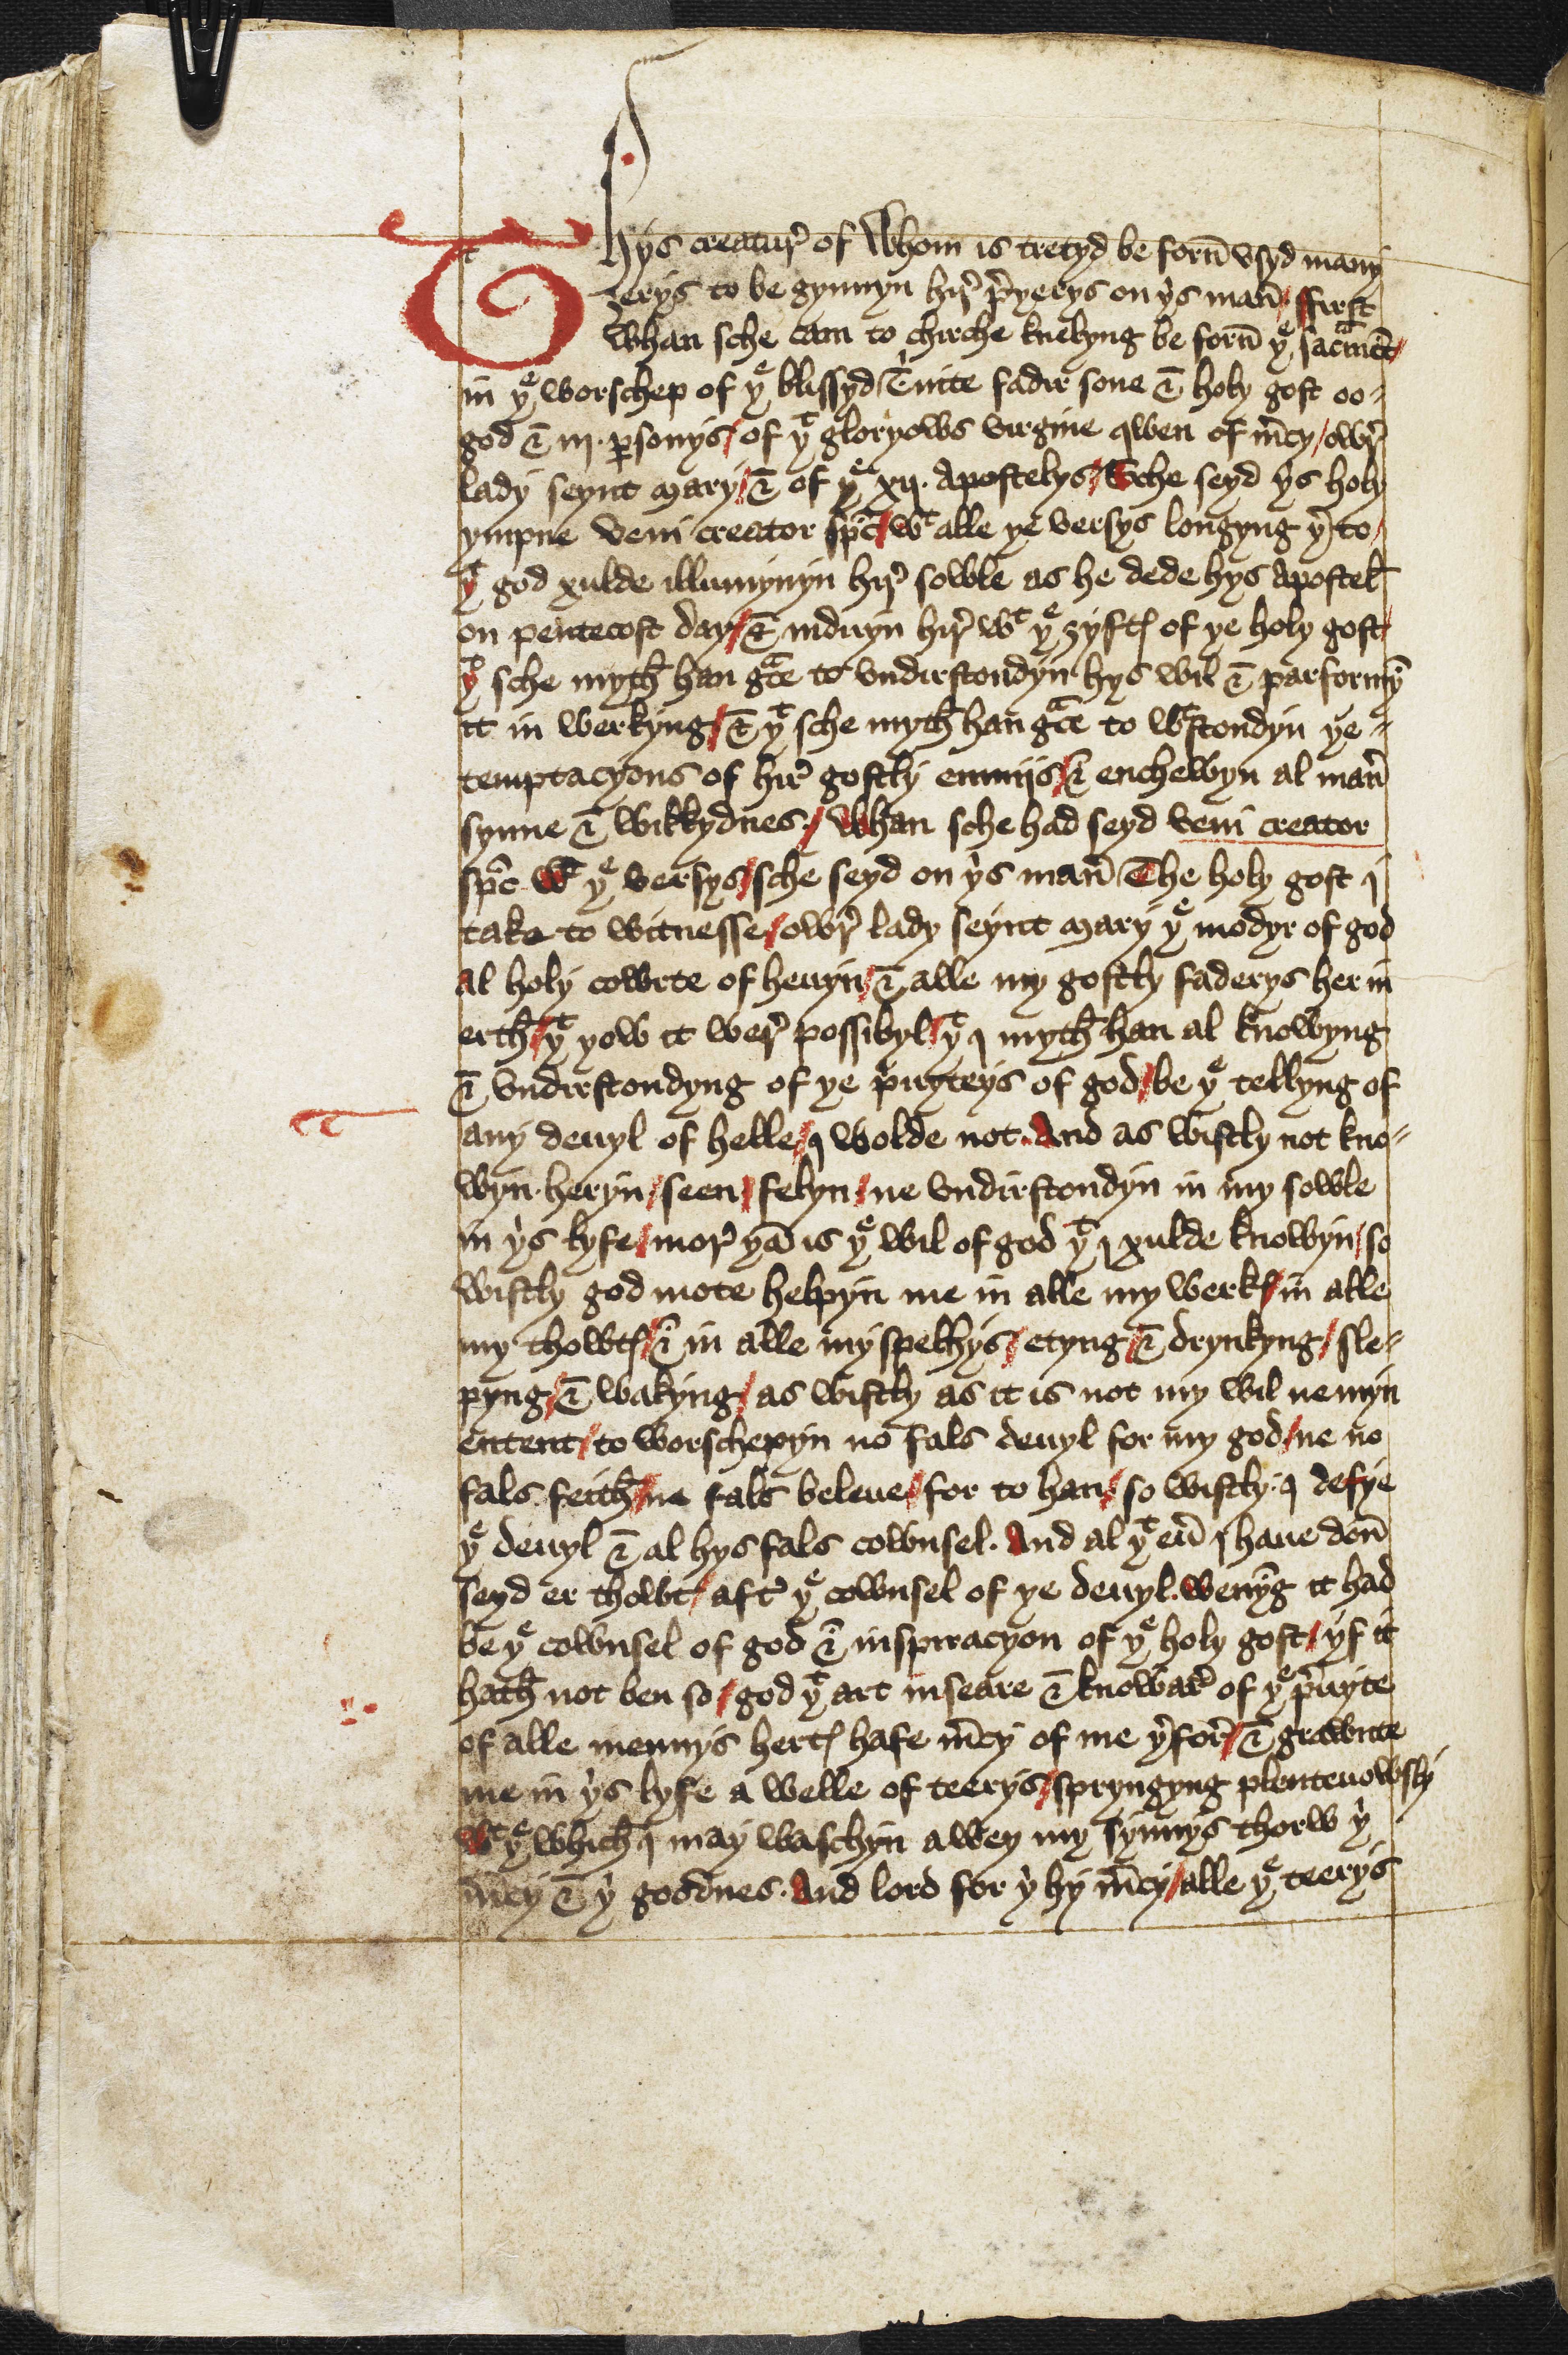 Thys creatur of whom is tretyd be forn vsyd many
ȝerys to be gynnyn hir preyerys on yis maner / ffirst
whan sche cam to chirche knelyng be forn yͤ sacrament /
in yͤ worschep of yͤ blissyd Trinite fadir sone & holy gost oo-
god & iij. personys / of yͭ gloryows virgine qwen of mercy / owr
lady seynt mary / & of yͤ xij. Apostelys / Sche seyd yis holy
ympne veni creator spc / wͭ alle ye versys longyng yerto /
yͭ god xulde illumynyn hir sowle as he dede hys Apostel
on pentecost day / & induyn hir wͭ yͤ ȝyftes of ye holy gost /
yͭ sche myth han grace to vndirstondyn hys wil & parformyn
it in werkyng / & yͭ sche myth han grace to wͭstondyn ye-
temptacyons of hir gostly enmijs / & enchewyn al maner
synne & wikkydnes. / Whan sche had seyd veni creator
spc. wͭ yͤ versys / sche seyd on yis maner The holy gost I
take to witnesse / owr lady seynt mary yͤ modyr of god
al holy cowrte of heuyn / & alle my gostly faderys her in
erth / yͭ yow it wer possibyl / yͭ I myth han al knowyng
& vndirstondyng of ye priuyteys of god / be yͤ tellyng of
any deuyl of helle / I wolde not. And as wistly not kno-
wyn. heryn / seen / felyn / ne vndirstondyn in my sowle
in yis lyfe / mor yan is yͤ wil of god yͭ I xulde knowyn / so
wistly god mote helpyn me in alle my werkes / in alle
my thowtes / & in alle my spekyys / etyng & drynkyng / sle-
pyng / & wakyng / as wistly as it is not my wil ne myn
entent / to worschepyn no fals deuyl for my god / ne no
fals feith / ne fals beleue / for to han / so wistly. I defye
yͤ deuyl & al hys fals cownsel. And al yͭ euer I haue don
seyd er thowt / aftir yͤ cownsel of ye deuyl. wenyng it had
be yͤ cownsel of god & inspiracyon of yͤ holy gost / yf it
hath not ben so / god yͭ art inseare & knowar of yͤ priuyte
of alle mennys hertes hafe mercy of me yerfor / & grawnte
me in yis lyfe a welle of teerys / spryngyng plenteuowsly
wͭ yͤ which I may waschyn awey my synnys thorw yi
mercy & yi goodnes. And lord for yi hy mercy / alle yͤ teerys